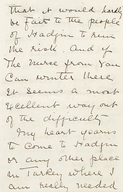 that it would hardly
be fair to the people
of Hadjin to run
the risk. And if
the nurse from Van
can winter there
it seems a most
excellent way out
of the difficulty
My heart yearns
to come to Hadjin
or any other place
in Turkey where I
am really needed